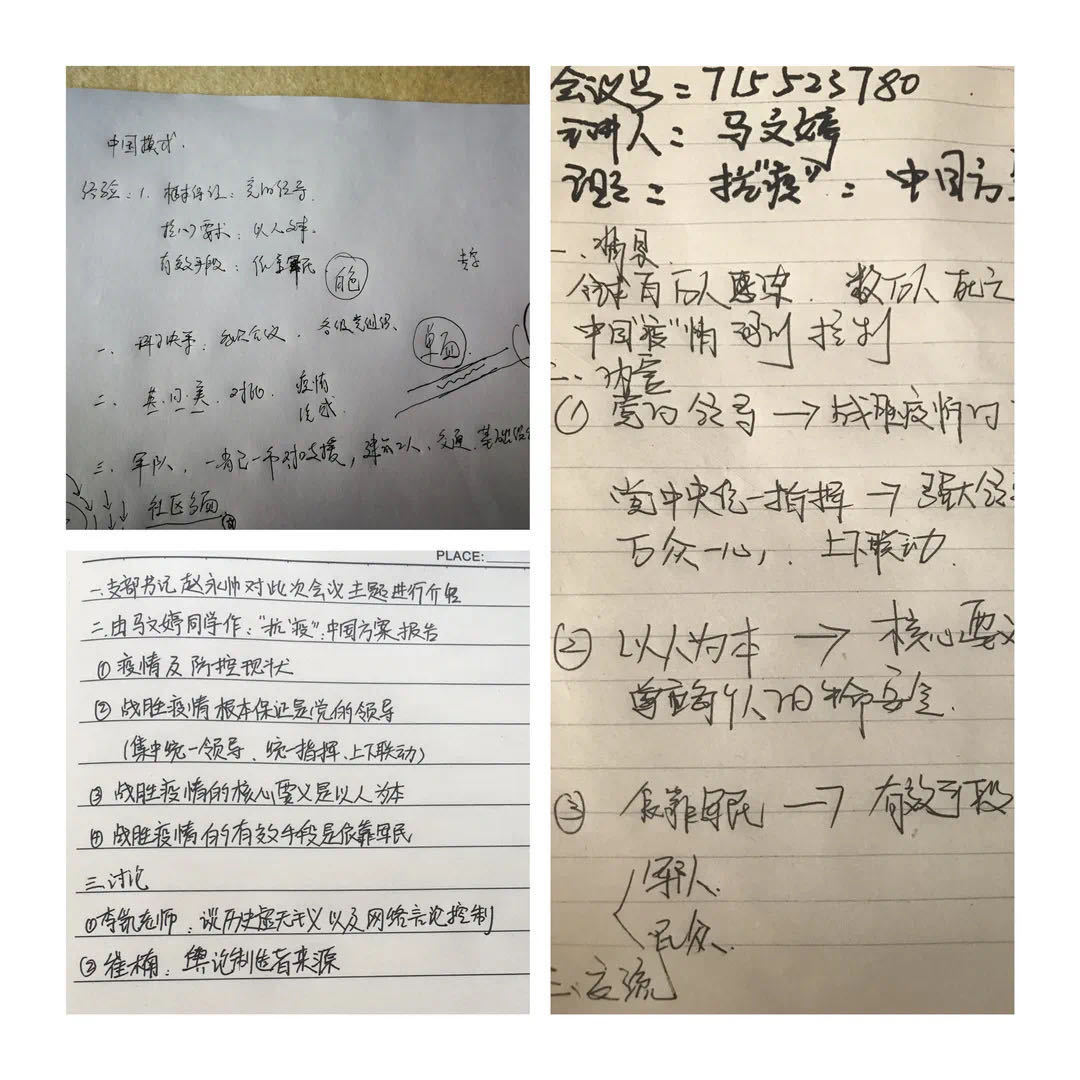 中国模式.
经验:1. 根本保证:党的领导.
核心要求:以人为本.
有效手段:依靠军民
白色
一、科学决策:各级党组织、
单面
二、英、日、美、对比. 疫情
三、军队、一省包一市对口支援,建筑工人、交通、基础
社区
PLACE:
一.支部书记赵永帅对此次会议主题进行介绍
二.由马文婷同学作:“抗‘疫’”:中国方案报告
①疫情及防控现状
②战胜疫情根本保证是党的领导
(集中统一领导、统一指挥、上下联动)
③战胜疫情的核心要义是以人为本
④战胜疫情的有效手段是依靠军民
三.讨论
①李凯老师:谈历史虚无主义以及网络言论控制
②崔楠:舆论制造者来源
会议号:715523780
主讲人:马文婷
抗“疫”:中国方
一.
全球百万人感染. 数万人死亡
中国“疫”情得到控制
二、内容
①党的领导→战胜疫情的
党中央统一指挥→强大
万众一心,上下联动.
②以人为本→核心要义
生命安全.
③依靠军民→有效手段
军人.
民众.
三、交流